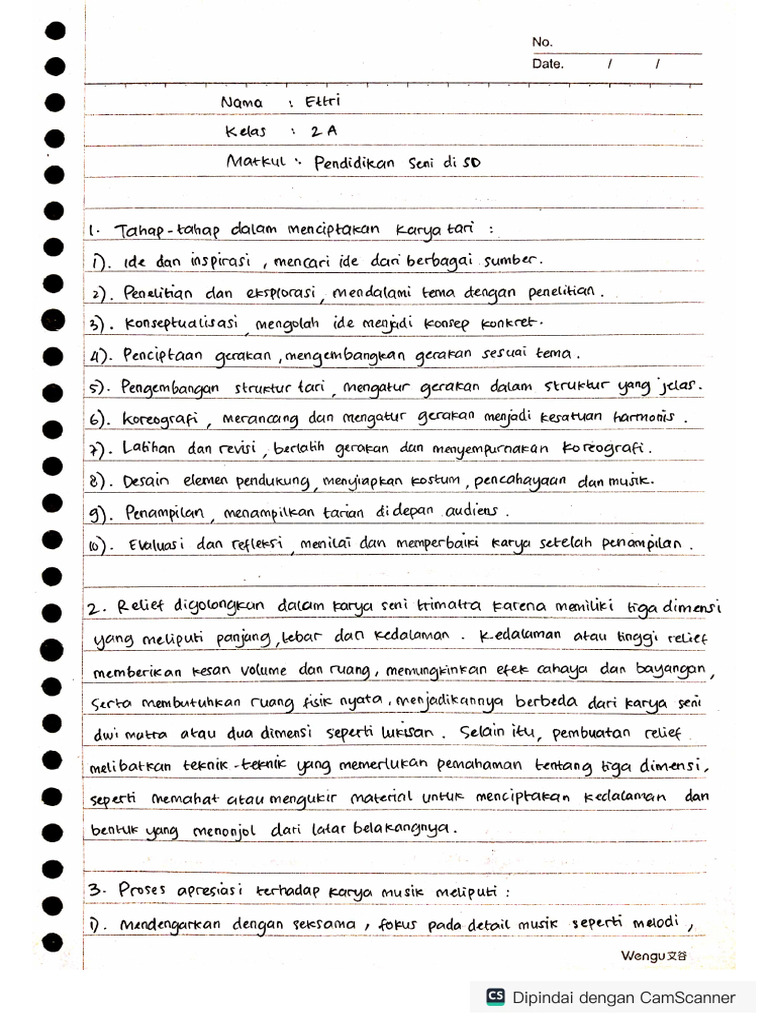 No.
Date. / /
Nama : Ettri
Kelas : 2 A
Matkul : Pendidikan Seni di SD
1. Tahap-tahap dalam menciptakan karya tari :
1). Ide dan inspirasi, mencari ide dari berbagai sumber.
2). Penelitian dan eksplorasi, mendalami tema dengan penelitian.
3). Konseptualisasi, mengolah ide menjadi konsep konkret.
4). Penciptaan gerakan, mengembangkan gerakan sesuai tema.
5). Pengembangan struktur tari, mengatur gerakan dalam struktur yang jelas.
6). Koreografi, merancang dan mengatur gerakan menjadi kesatuan harmonis.
7). Latihan dan revisi, berlatih gerakan dan menyempurnakan koreografi.
8). Desain elemen pendukung, menyiapkan kostum, pencahayaan dan musik.
9). Penampilan, menampilkan tarian di depan audiens.
10). Evaluasi dan refleksi, menilai dan memperbaiki karya setelah penampilan.
2. Relief digolongkan dalam karya seni trimatra karena memiliki tiga dimensi
yang meliputi panjang, lebar dan kedalaman. Kedalaman atau tinggi relief
memberikan kesan volume dan ruang, memungkinkan efek cahaya dan bayangan,
serta membutuhkan ruang fisik nyata, menjadikannya berbeda dari karya seni
dwi matra atau dua dimensi seperti lukisan. Selain itu, pembuatan relief
melibatkan teknik-teknik yang memerlukan pemahaman tentang tiga dimensi,
seperti memahat atau mengukir material untuk menciptakan kedalaman dan
bentuk yang menonjol dari latar belakangnya.
3. Proses apresiasi terhadap karya musik meliputi :
1). Mendengarkan dengan seksama, fokus pada detail musik seperti melodi,
Wengu文谷
CS Dipindai dengan CamScanner